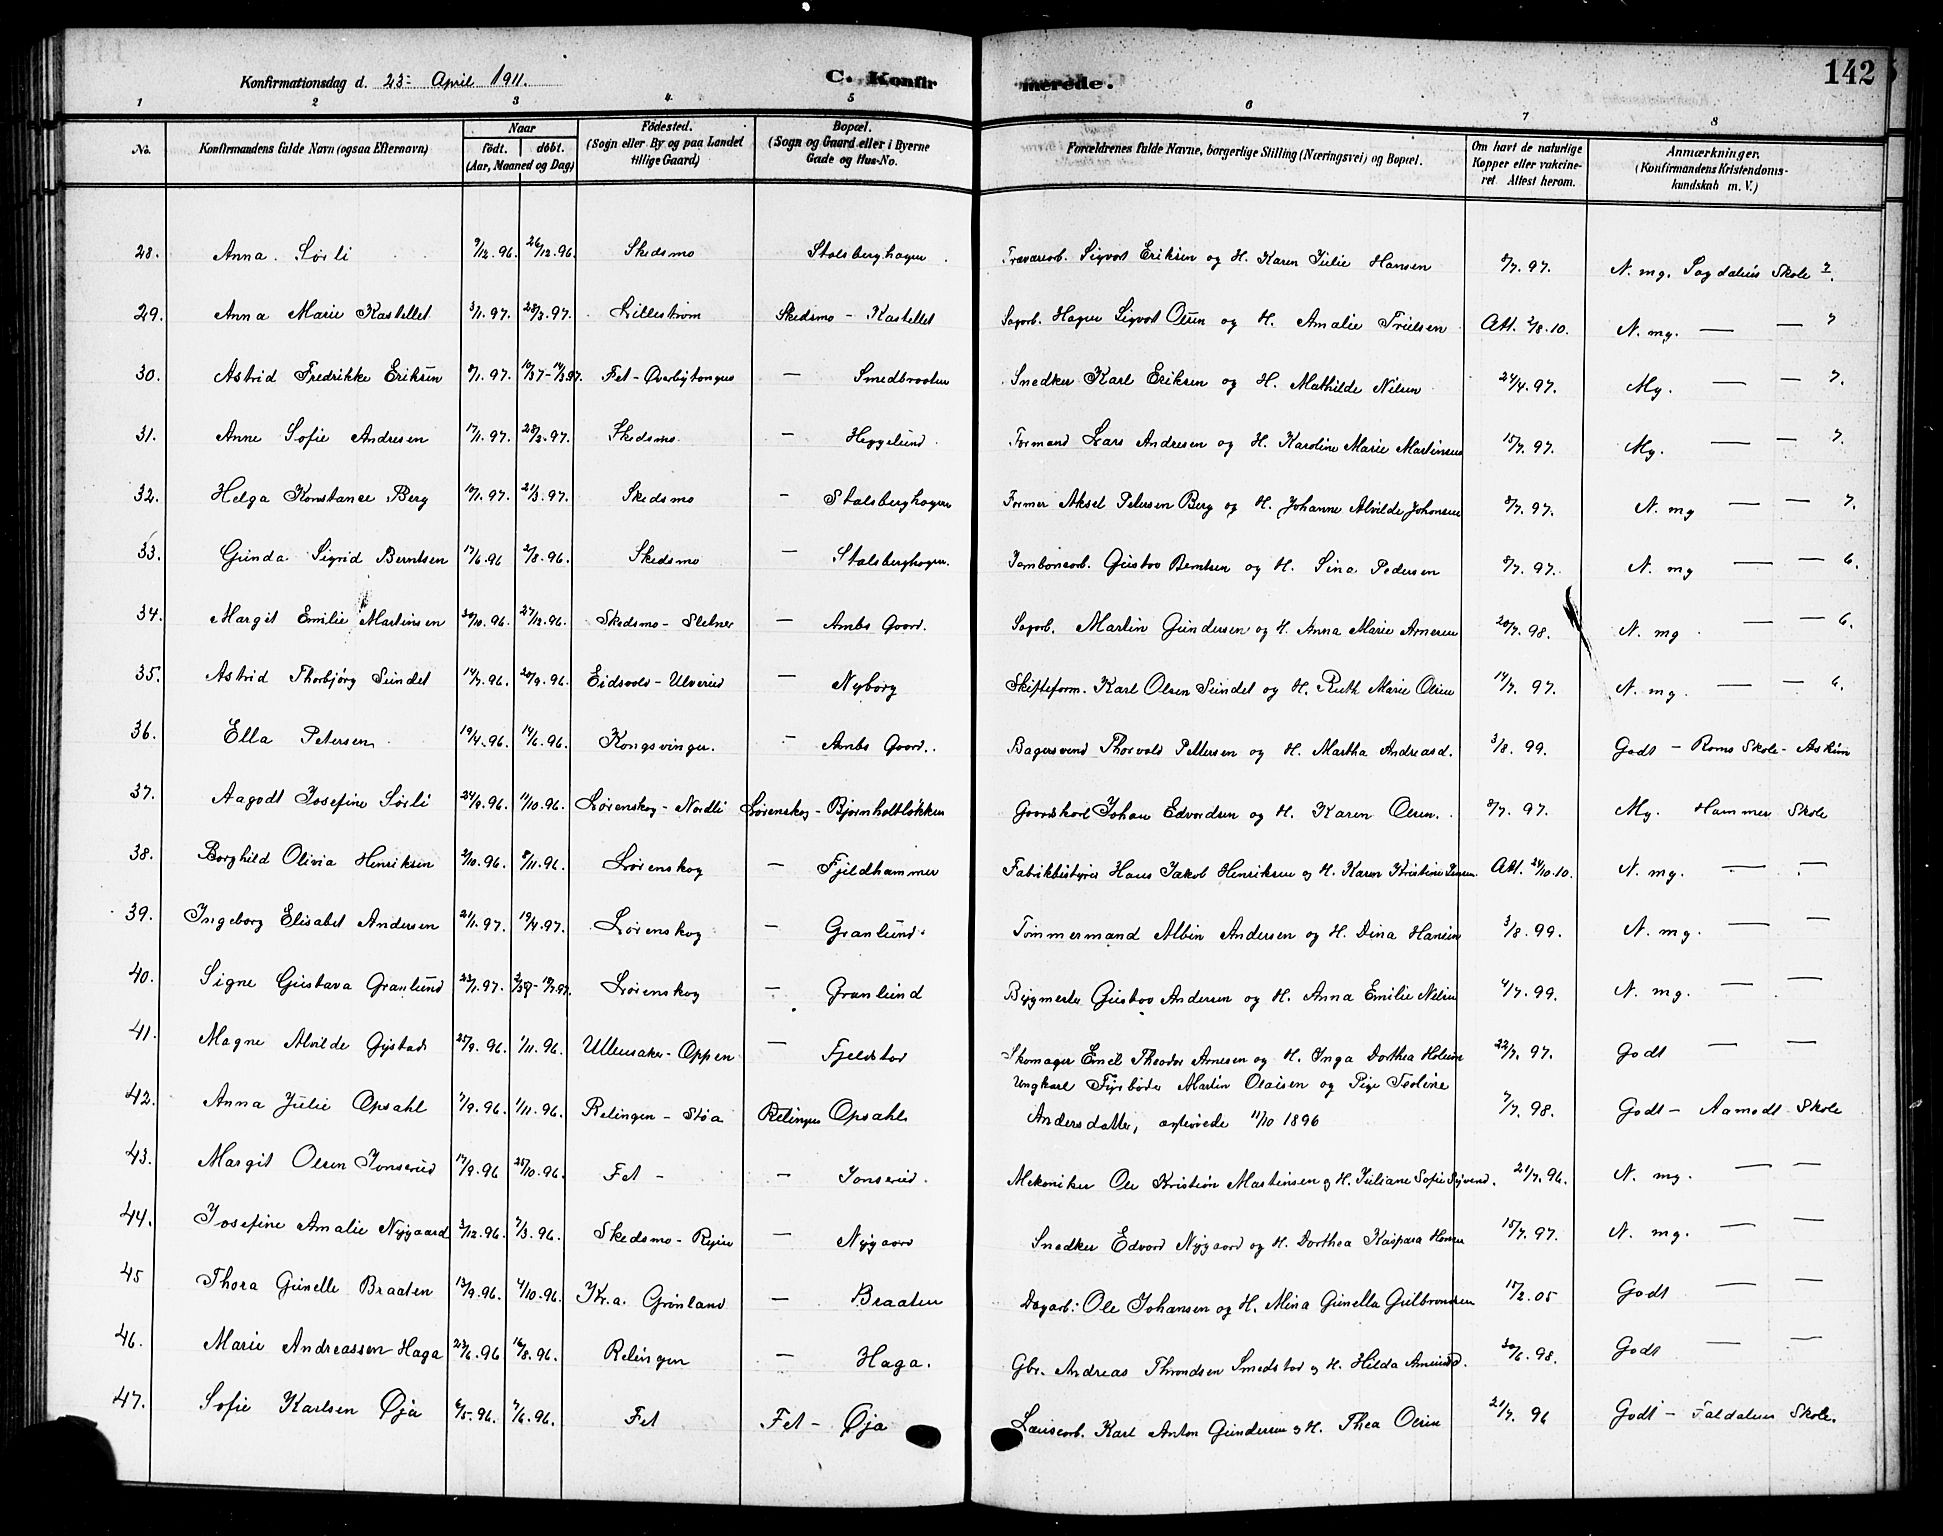 142
Konfirmationsdag d. 23- April 1911. C. Konfirmerede.
1 2 3 4 5 6 7 8
No. Konfirmandens fulde Navn (ogsaa Efternavn) Naar født. døbt. (Aar, Maaned og Dag) Fødested. (Sogn eller By og paa Landet tillige Gaard) Bopæl. (Sogn og Gaard eller i Byerne Gade og Hus-No. Forældrenes fulde Navne, borgerlige Stilling (Næringsvei) og Bopæl. Om havt de naturlige Kopper eller vakcineret. Attest herom. Anmærkninger. (Konfirmandens Kristendomskundskab m. V.)
28. Anna Sørli 9/12.96. 26/12.96. Skedsmo Stalsberghagen Trævareorb. Sigvort Eriksen og H. Karen Julie Hansen 8/7.97. N. mg. Sagdalens Skole 7.
29. Anna Marie Kastellet 3/1.97. 28/3.97. Lillestrøm Skedsmo - Kastellet Sagarb. Hagen Sigvort Olsen og H. Amalie Truelsen Att. 2/8.10. N. mg. — — 7
30. Astrid Fredrikke Eriksen 8/1.97. Fet - Øverbytangen — Smedbraaten Snedker Karl Eriksen og H. Mathilde Nilsen 24/4.97. Mg. — — 7.
31. Anne Sofie Andresen 17/1.97. 28/3.97. Skedsmo. — Heggelund Formand Lars Andresen og H. Karoline Marie Martinsen 15/7.97. Mg. — — 7.
32. Helga Konstance Berg 10/1.97. 21/3.97. Skedsmo — Stalsberghagen Former Aksel Petersen Berg og H. Johanne Alvilde Johansen 8/7.97. N. mg — — 7.
33. Gunda Sigrid Berntsen 17/6.96 2/8.96. Skedsmo — Stalsberghagen. Jernbanearb. Gustav Berntsen og H. Sina Pedersen 8/7.97. N. mg — — 6.
34. Margit Emilie Martinsen 30/10.96. 27/12.96. Skedsmo - Sletner — Ambs Gaard. Sagarb. Martin Gundersen og H. Anna Marie Arnesen 20/7.98. N. mg. — — 6.
35. Astrid Thorbjørg Sundet 14/7.96. 20/9.96. Eidsvold - Ulverud — Nyborg Skifteform. Karl Olsen Sundet og H. Ruth Marie Olsen 14/7.97. N. mg. — — 6.
36. Ella Petersen 19/4.96. 14/6.96. Kongsvinger. — Ambs Gaard. Bagersvend Thorvald Pettersen og H. Martha Andreasd. 3/8.99. Godt - Roms Skole - Askim
37. Aagodt Josefine Sørli 24/9.96. 11/10.96. Lørenskog - Nordli Lørenskog - Bjørnholtløkken Gaardskarl Johan Edvardsen og H. Karen Olsen. 8/7.97. Mg. Hammer Skole
38. Borghild Olivia Henriksen 2/10.96. 8/11.96. Lørenskog — Fjeldhammer Fabrikbestyrer Hans Jakob Henriksen og H. Karen Kristine Jensen. Att. 24/10.10. N. mg. — —
39. Ingeborg Elisabet Andersen 21/1.97. 19/4.97. Lørenskog — Granlund. Tømmermand Albin Andersen og H. Dina Hansen 3/8.99. N. mg. — —
40. Signe Gustava Granlund 23/1.97. Lørenskog — Granlund Bygmester Gustav Andersen og H. Anna Emilie Nilsen 4/7.99. N. mg. — —
41. Magne Alvilde Gystad 25/9.96. 1/11.96. Ullensaker - Oppen — Fjeldstad Skomager Emil Theodor Arnesen og H. Inga Dorthea Holum 22/7.97. Godt — —
42. Anna Julie Opsahl 7/9.96. 1/11.96. Relingen - Støa Relingen Opsahl Ungkarl Fyrbøder Martin Olaisen og Pige Teoline
Andersdatter, ægteviede 11/10 1896 7/7.98. Godt - Aamodt Skole
43. Margit Olsen Jonserud 17/9.96 25/10.96. Fet - — Jonserud. Mekaniker Ole Kristian Martinsen og H. Juliane Sofie Syvend. 21/7.96. N. mg. — —
44. Josefine Amalie Nygaard 3/12.96. 7/3.96. Skedsmo - Ryen — Nygaard Snedker Edvard Nygaard og H. Dorthea Kaspara Hansen 15/7.97. N. mg. — —
45 Thora Gunelle Braaten 13/9.96. 4/10.96. Kr.a. Grønland — Braaten Dagarb. Ole Johansen og H. Mina Gunella Gulbrandsen 15/2.05 Godt — —
46. Marie Andreassen Haga 23/6.96 16/8.96. Relingen — Haga. Gbr. Andreas Throndsen Smedstad og H. Hilda Amund d. 30/6.98. Godt — —
47. Sofie Karlsen Øja 6/5.96. 7/6.96. Fet Fet - Øja Løusearb. Karl Anton Gundersen og H. Thea Olsen 21/7.96 Godt - Faldalens Skole.